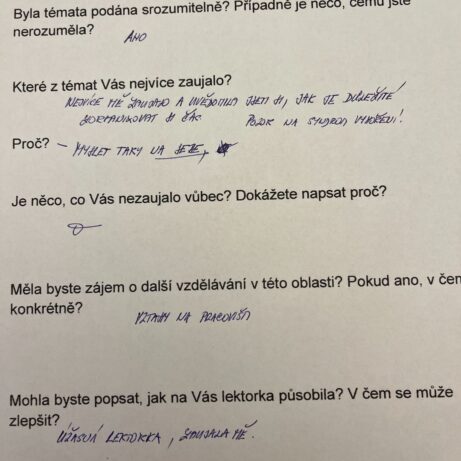 Byla témata podána srozumitelně? Případně je něco, čemu jste
nerozuměla?
ANO
Které z témat Vás nejvíce zaujalo?
NEJVÍCE MĚ ZAUJALO A UVĚDOMILA JSEM SI, JAK JE DŮLEŽITÉ
ZORGANIZOVAT SI ČAS POZOR NA SYNDROM VYHOŘENÍ!
Proč? – MYSLET TAKY NA SEBE,
Je něco, co Vás nezaujalo vůbec? Dokážete napsat proč?
Měla byste zájem o další vzdělávání v této oblasti? Pokud ano, v čem
konkrétně?
VZTAHY NA PRACOVIŠTI
Mohla byste popsat, jak na Vás lektorka působila? V čem se může
zlepšit?
ÚŽASNÁ LEKTORKA, ZAUJALA MĚ.